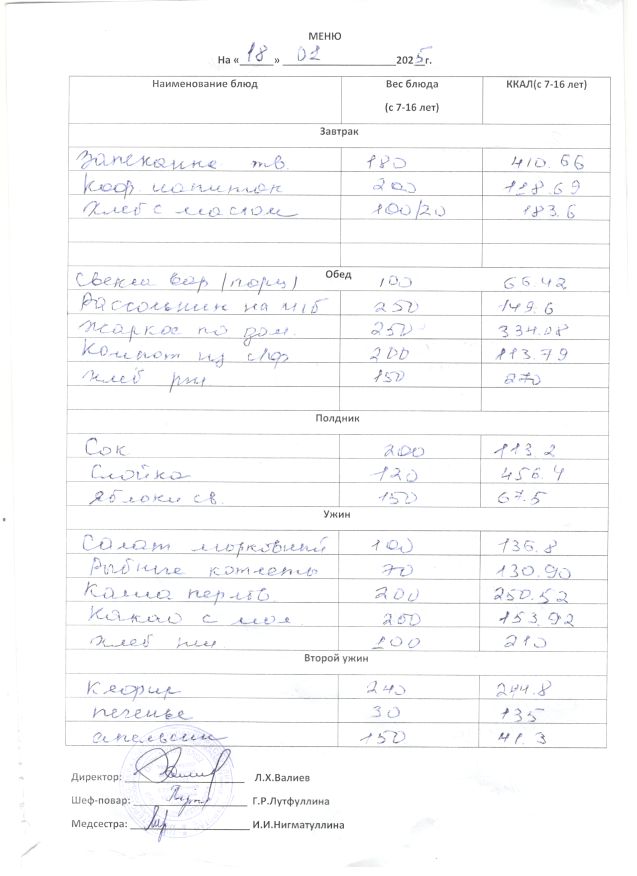 МЕНЮ
На «18» 02 2025г.
Наименование блюд Вес блюда (с 7-16 лет) ККАЛ(с 7-16 лет)
Завтрак
Запеканка тв. 180 410.66
Коф. напиток 200 118.69
Хлеб с маслом 100/20 183.6
Обед
Свекла вар (порц) 100 66.42
Рассольник на м/б 250 149.6
Жаркое по дом. 250 334.08
Компот из с/ф 200 113.79
Хлеб рж 150 270
Полдник
Сок 200 113.2
Слойка 120 456.4
Яблоки св. 150 67.5
Ужин
Салат морковный 100 136.8
Рыбные котлеты 70 130.90
Каша перлов. 200 250.52
Какао с мол. 200 153.92
Хлеб пш. 100 210
Второй ужин
Кефир 240 244.8
печенье 30 135
апельсин 150 41.3
Директор: Л.Х.Валиев
Шеф-повар: Г.Р.Лутфуллина
Медсестра: И.И.Нигматуллина